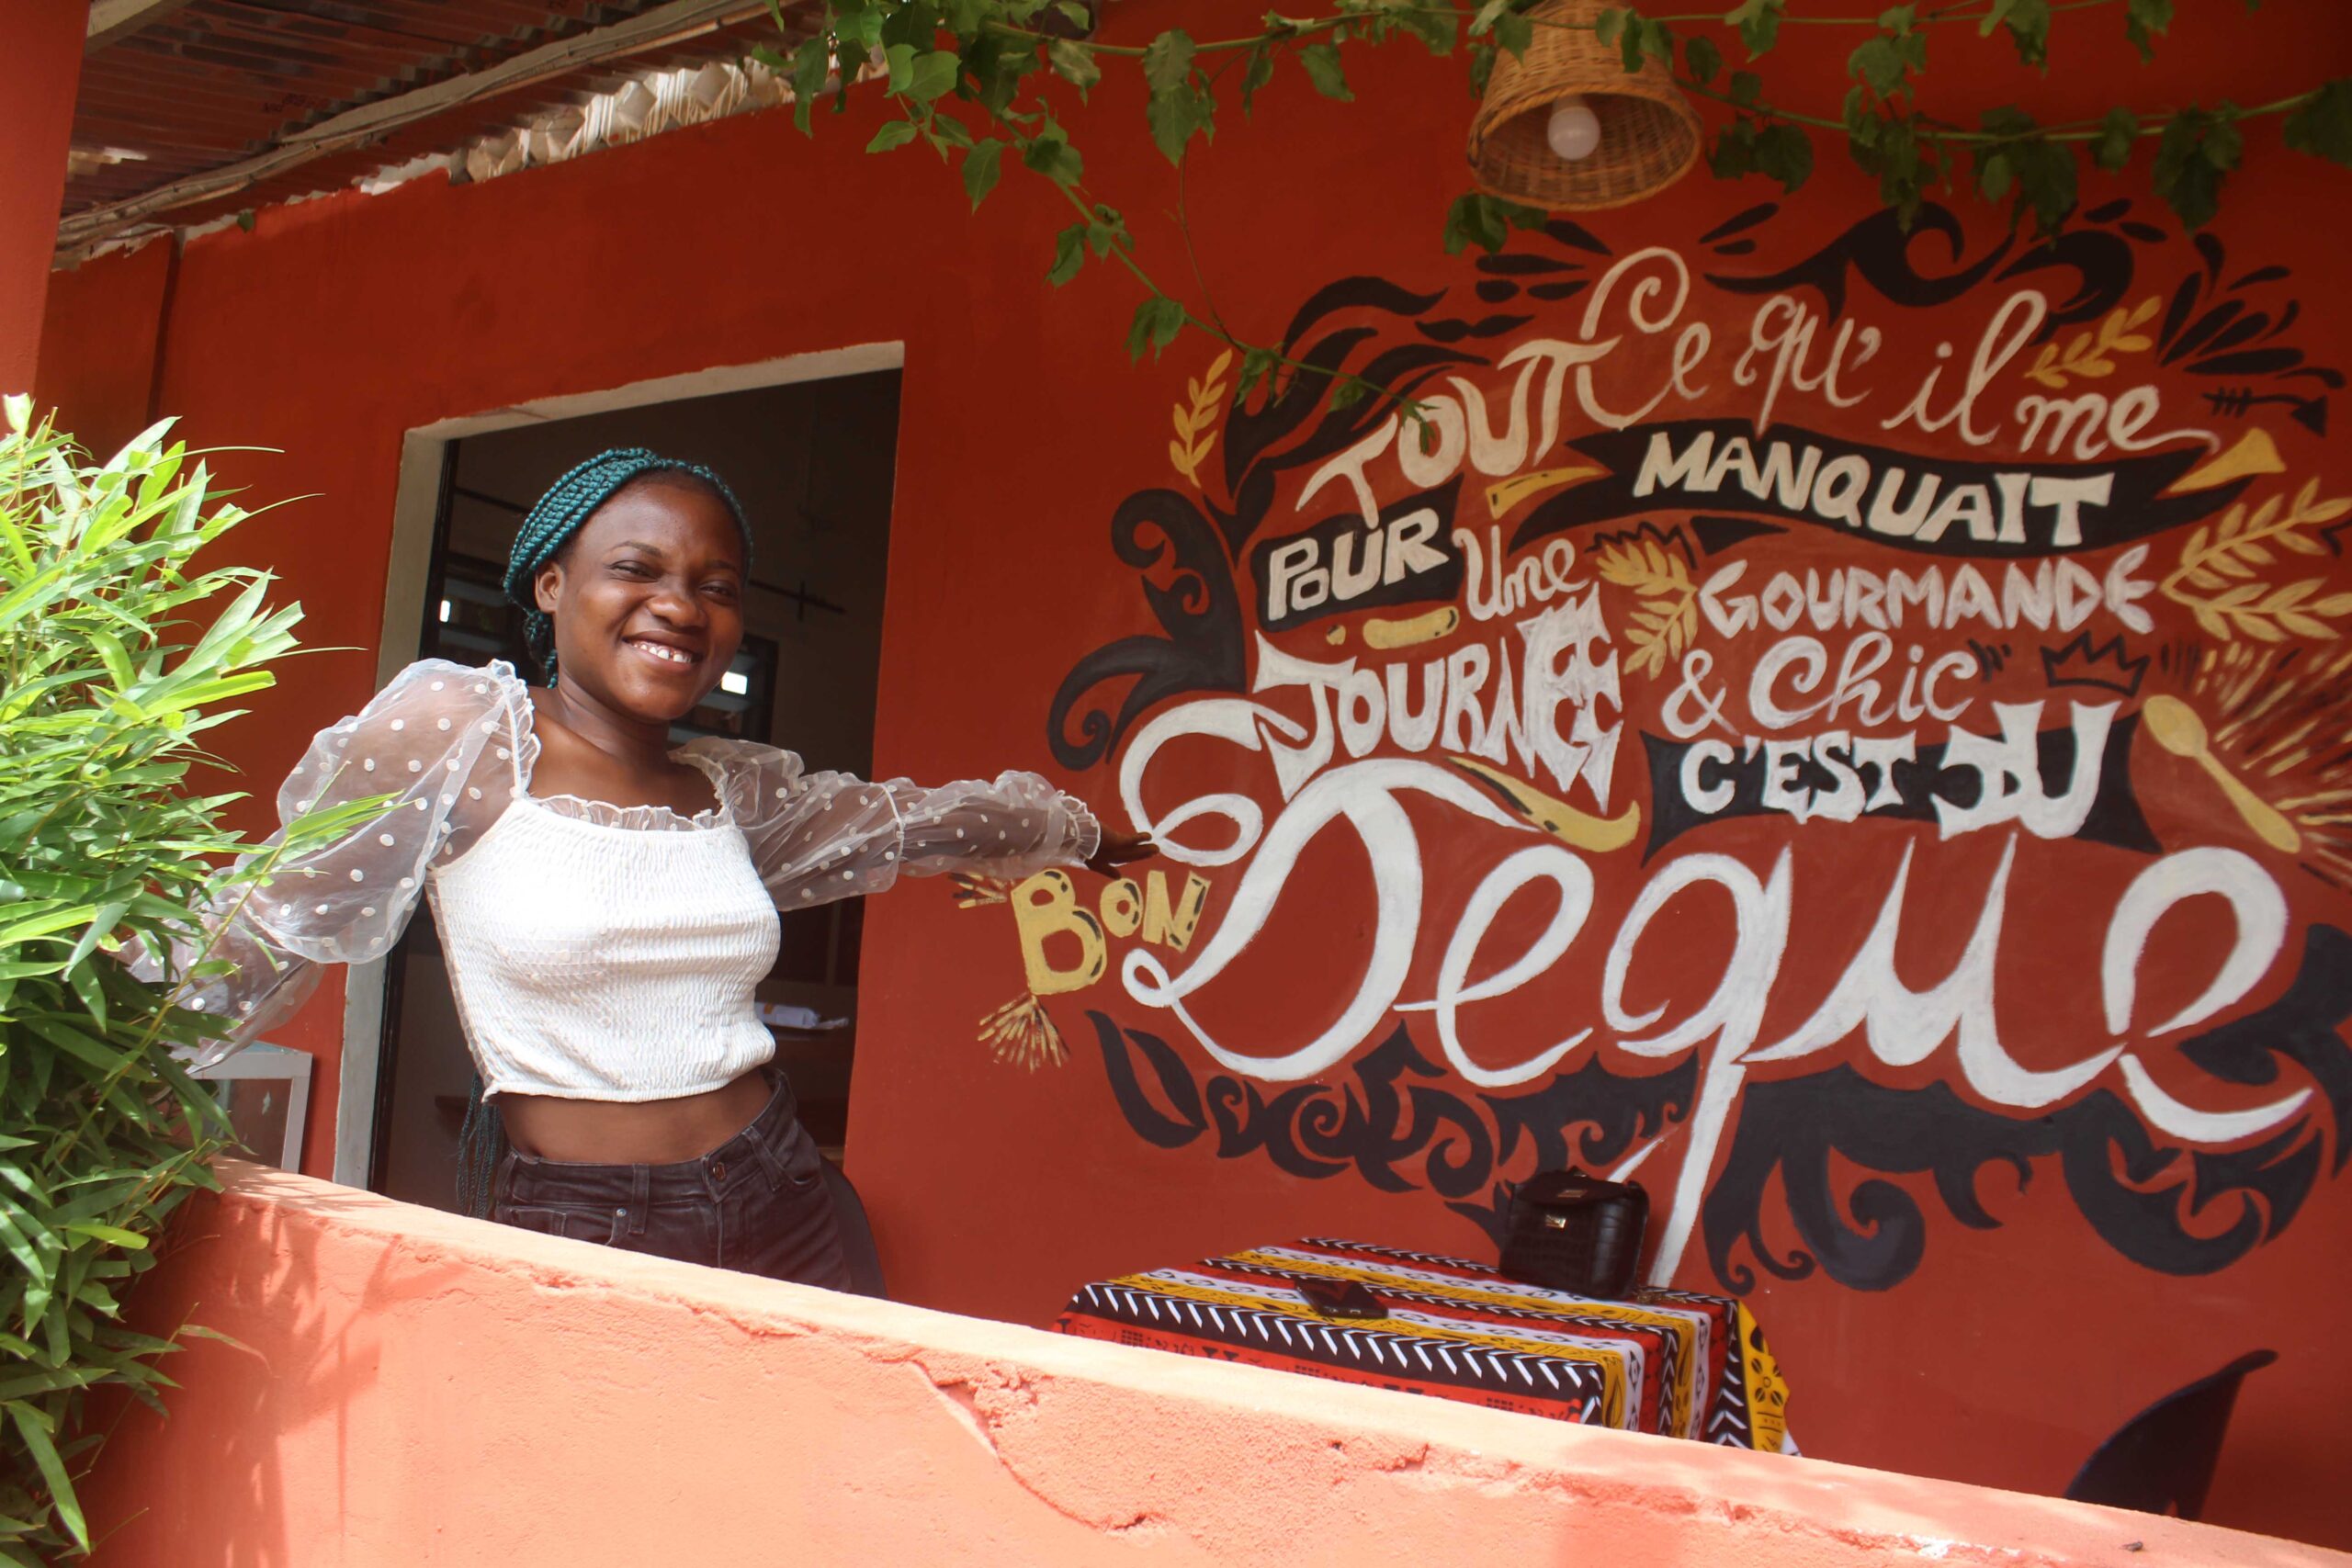 TOUT Ce qu'il me
MANQUAIT
POUR Une
JOURNÉE
GOURMANDE
& Chic
C'EST DU
BON
Deguè